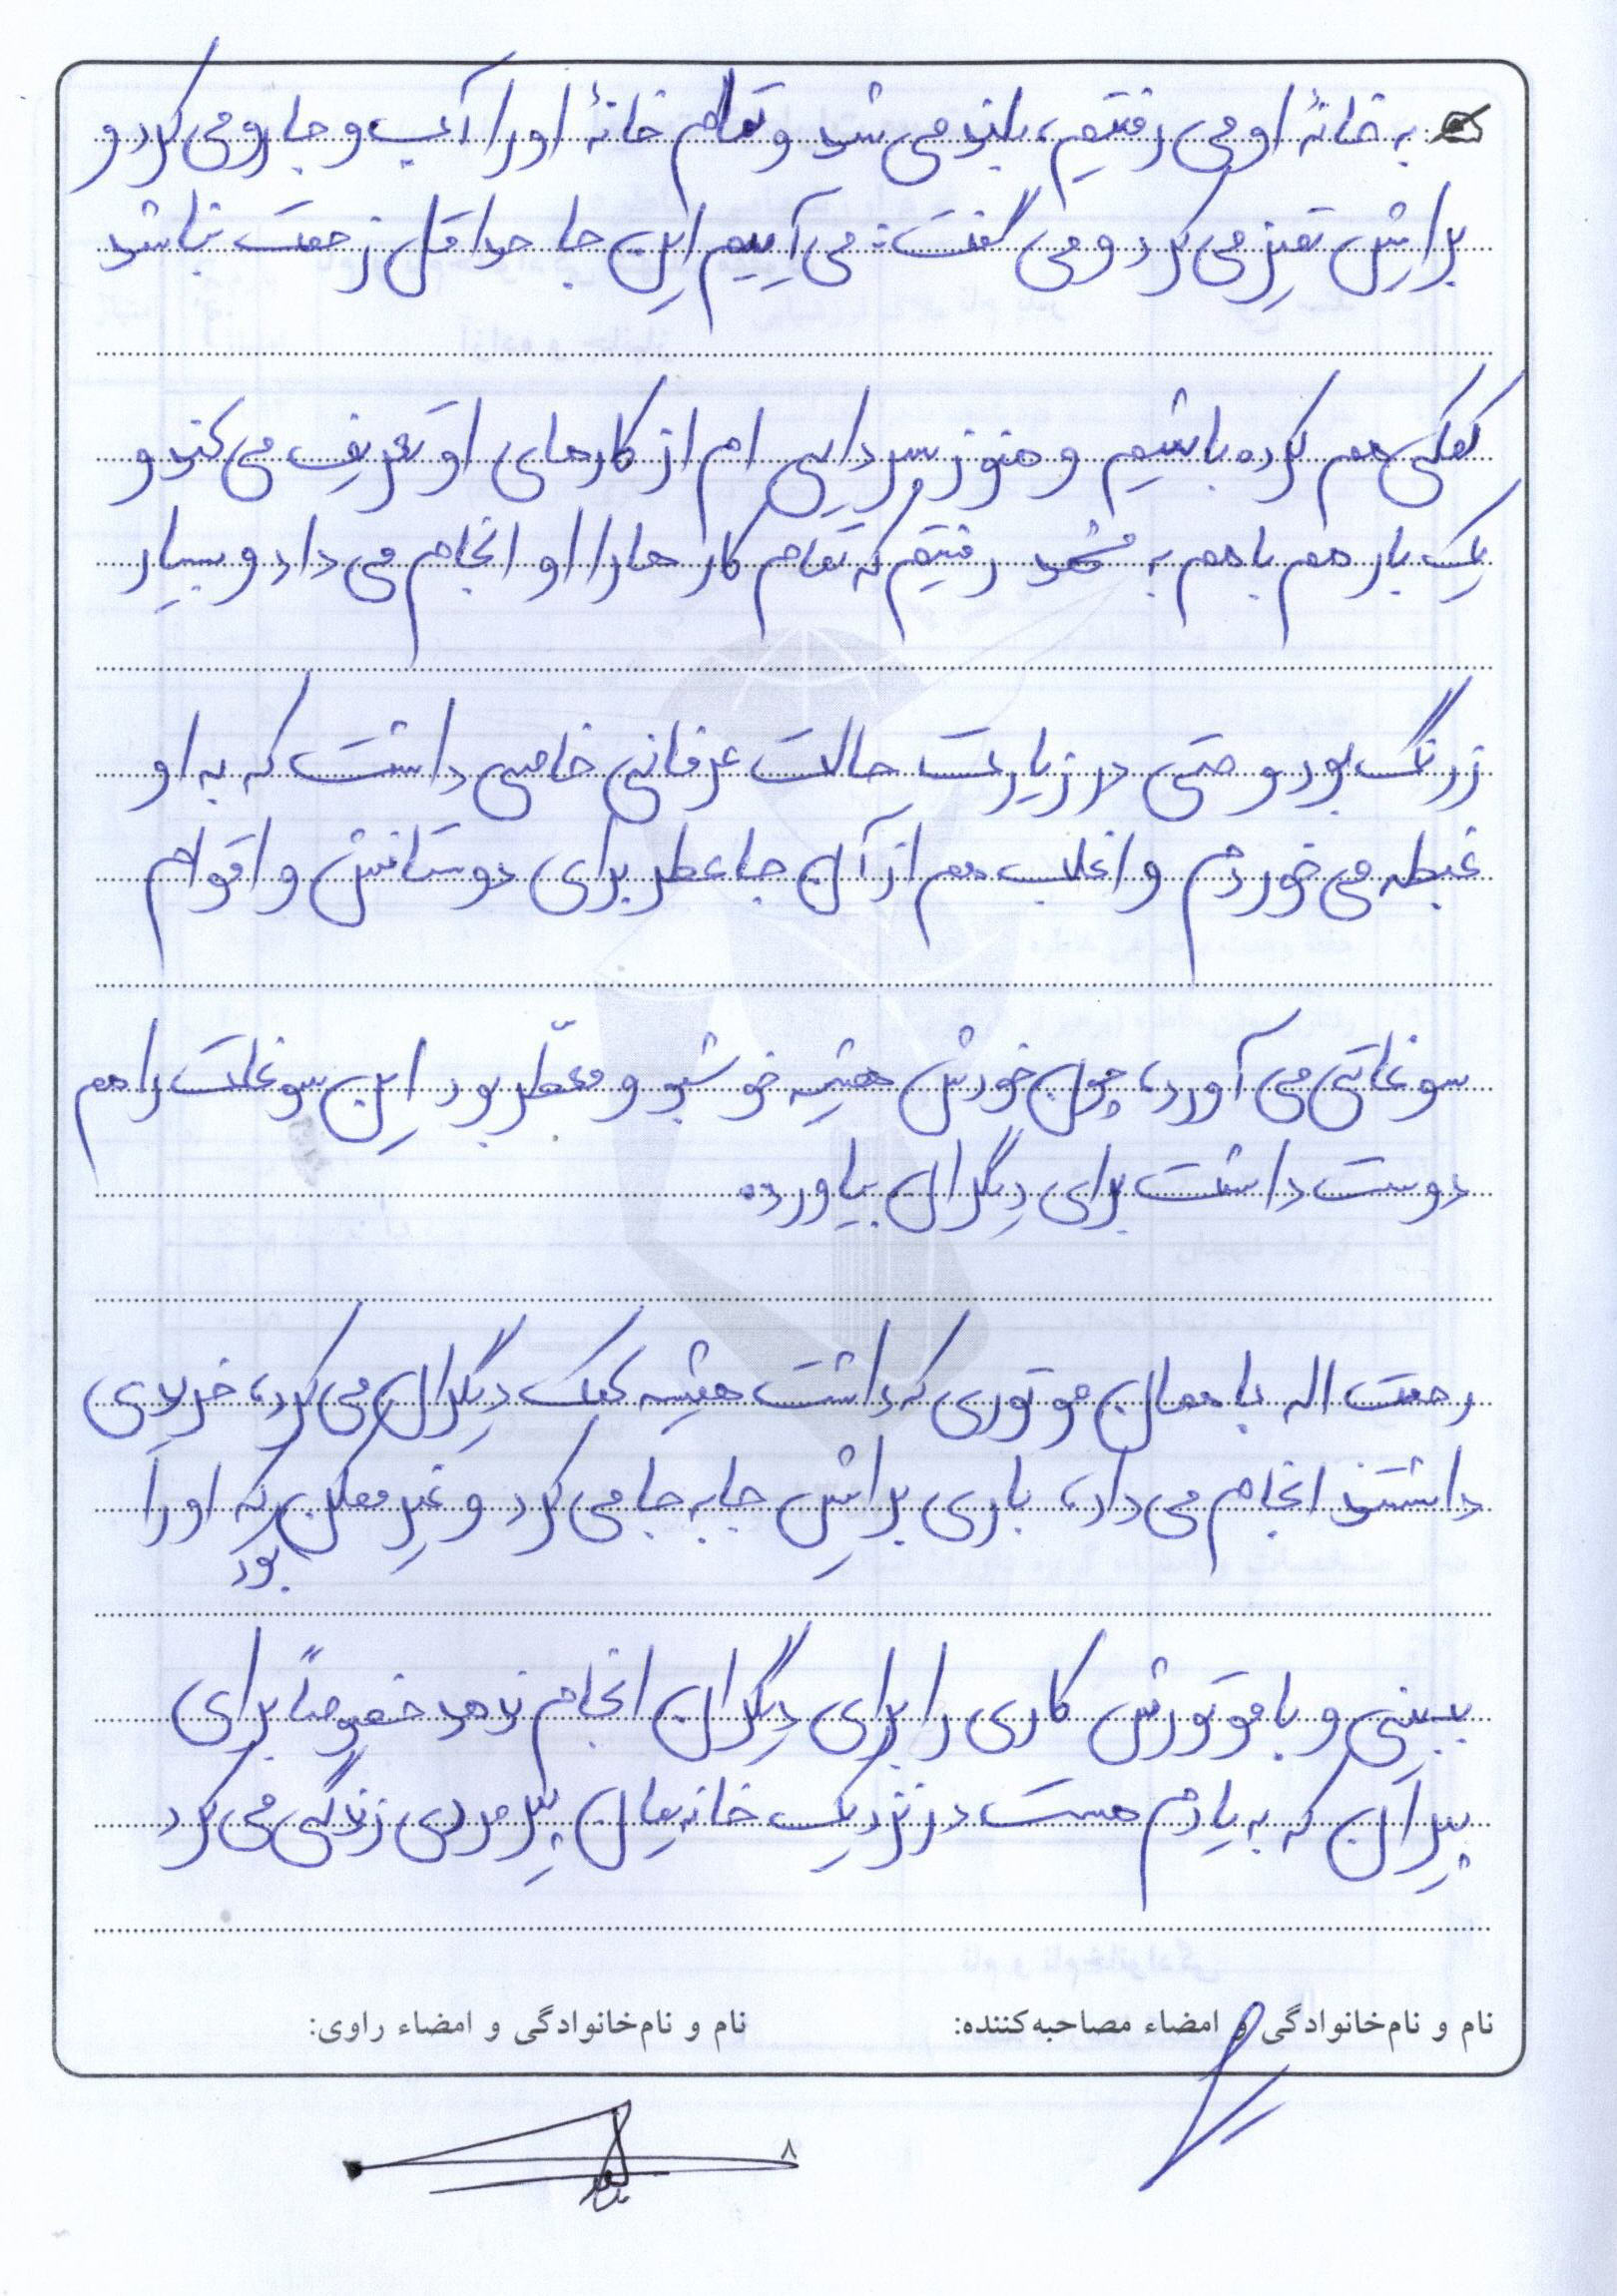 به خانهٔ او می رفتیم، بلند می شد و تمام خانهٔ او را آب و جارو می کرد و
برایش تمیز می کرد و می گفت: می آییم این جا حداقل زحمت نباشد
کمکی هم کرده باشیم و هنوز پسر دایی ام از کارهای او تعریف می کند و
یک بار هم با هم به مشهد رفتیم که تمام کارها را او انجام می داد و بسیار
زرنگ بود و حتی در زیارت حالات عرفانی خاصی داشت که به او
غبطه می خوردم و اغلب هم از آن جا عطر برای دوستانش و اقوام
سوغاتی می آورد، چون خودش همیشه خوشبو و معطّر بود این سوغات را هم
دوست داشت برای دیگران بیاورد.
رحمت اله با همان موتوری که داشت همیشه کمک دیگران می کرد، خریدی
داشتند انجام می داد، باری برایش جا به جا می کرد و غیر ممکن بود که او را
ببینی و با موتورش کاری را برای دیگران انجام ندهد خصوصاً برای
پیران که به یادم هست در نزدیک خانه یمان پیرمردی زندگی می کرد
نام و نام‌خانوادگی و امضاء مصاحبه‌کننده:
نام و نام‌خانوادگی و امضاء راوی:
۸